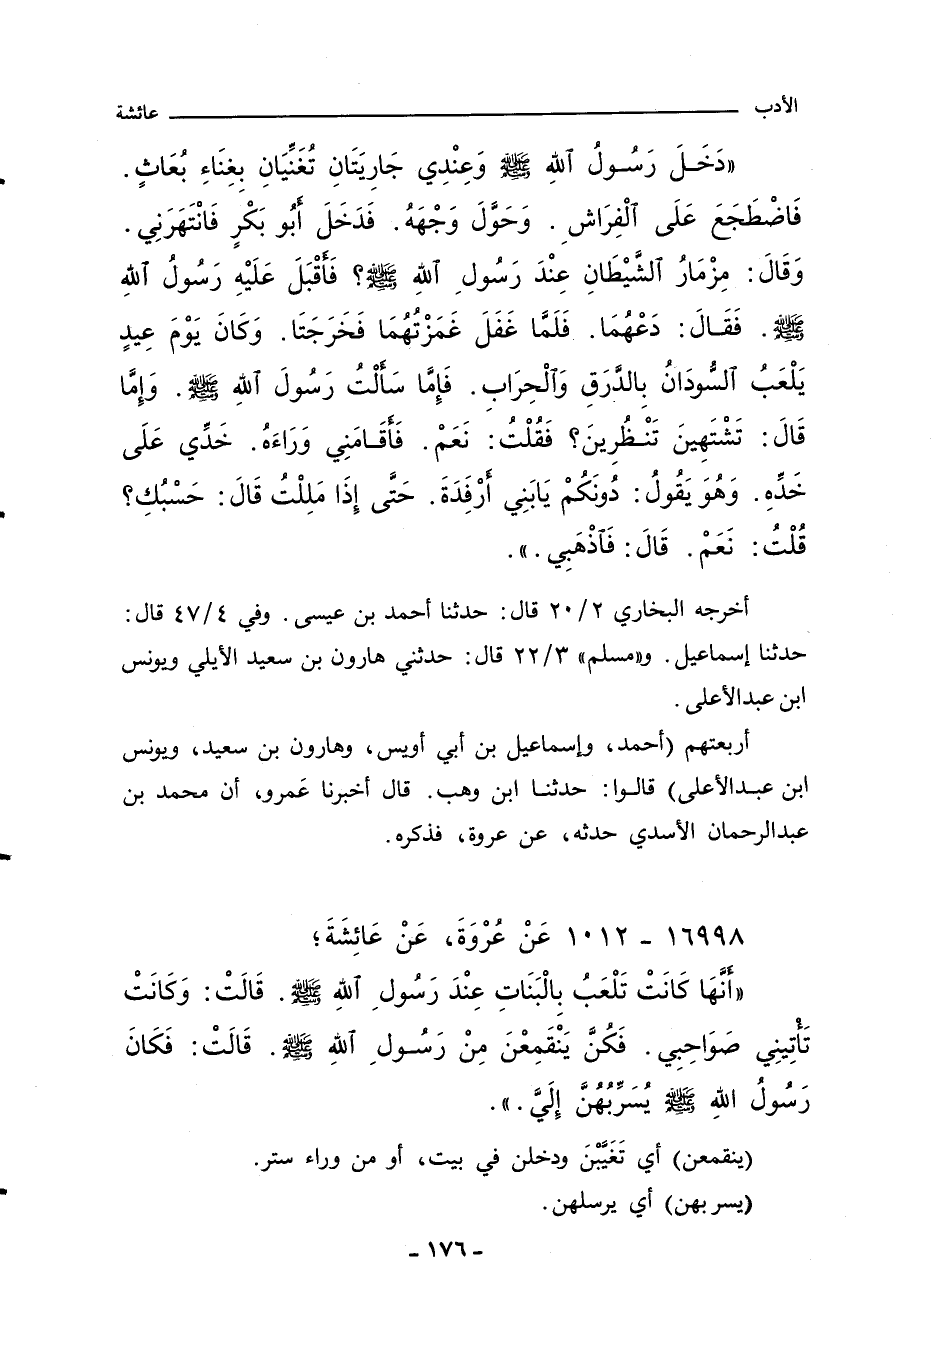 الأدب ــــــــــــــــــــ عائشة
«دَخَلَ رَسُولُ ٱللهِ ﷺ وَعِنْدِي جَارِيَتَانِ تُغَنِّيَانِ بِغِنَاءِ بُعَاثٍ.
فَاضْطَجَعَ عَلَى ٱلْفِرَاشِ. وَحَوَّلَ وَجْهَهُ. فَدَخَلَ أَبُو بَكْرٍ فَانْتَهَرَنِي.
وَقَالَ: مِزْمَارُ ٱلشَّيْطَانِ عِنْدَ رَسُولِ ٱللهِ ﷺ؟ فَأَقْبَلَ عَلَيْهِ رَسُولُ ٱللهِ
ﷺ. فَقَالَ: دَعْهُمَا. فَلَمَّا غَفَلَ غَمَزْتُهُمَا فَخَرَجَتَا. وَكَانَ يَوْمَ عِيدٍ
يَلْعَبُ ٱلسُّودَانُ بِالدَّرَقِ وَٱلْحِرَابِ. فَإِمَّا سَأَلْتُ رَسُولَ ٱللهِ ﷺ. وَإِمَّا
قَالَ: تَشْتَهِينَ تَنْظُرِينَ؟ فَقُلْتُ: نَعَمْ. فَأَقَامَنِي وَرَاءَهُ. خَدِّي عَلَى
خَدِّهِ. وَهُوَ يَقُولُ: دُونَكُمْ يَابَنِي أَرْفِدَةَ. حَتَّى إِذَا مَلِلْتُ قَالَ: حَسْبُكِ؟
قُلْتُ: نَعَمْ. قَالَ: فَٱذْهَبِي.».
أخرجه البخاري ٢٠/٢ قال: حدثنا أحمد بن عيسى. وفي ٤٧/٤ قال:
حدثنا إسماعيل. و«مسلم» ٢٢/٣ قال: حدثني هارون بن سعيد الأيلي ويونس
ابن عبدالأعلى.
أربعتهم (أحمد، وإسماعيل بن أبي أويس، وهارون بن سعيد، ويونس
ابن عبدالأعلى) قالوا: حدثنا ابن وهب. قال أخبرنا عَمرو، أن محمد بن
عبدالرحمان الأسدي حدثه، عن عروة، فذكره.
١٦٩٩٨ ـ ١٠١٢ عَنْ عُرْوَةَ، عَنْ عَائِشَةَ؛
«أَنَّهَا كَانَتْ تَلْعَبُ بِالْبَنَاتِ عِنْدَ رَسُولِ ٱللهِ ﷺ. قَالَتْ: وَكَانَتْ
تَأْتِينِي صَوَاحِبِي. فَكُنَّ يَنْقَمِعْنَ مِنْ رَسُولِ ٱللهِ ﷺ. قَالَتْ: فَكَانَ
رَسُولُ اللهِ ﷺ يُسَرِّبُهُنَّ إِلَيَّ.».
(ينقمعن) أي تَغَيَّبْنَ ودخلن في بيت، أو من وراء ستر.
(يسربهن) أي يرسلهن.
- ١٧٦ -